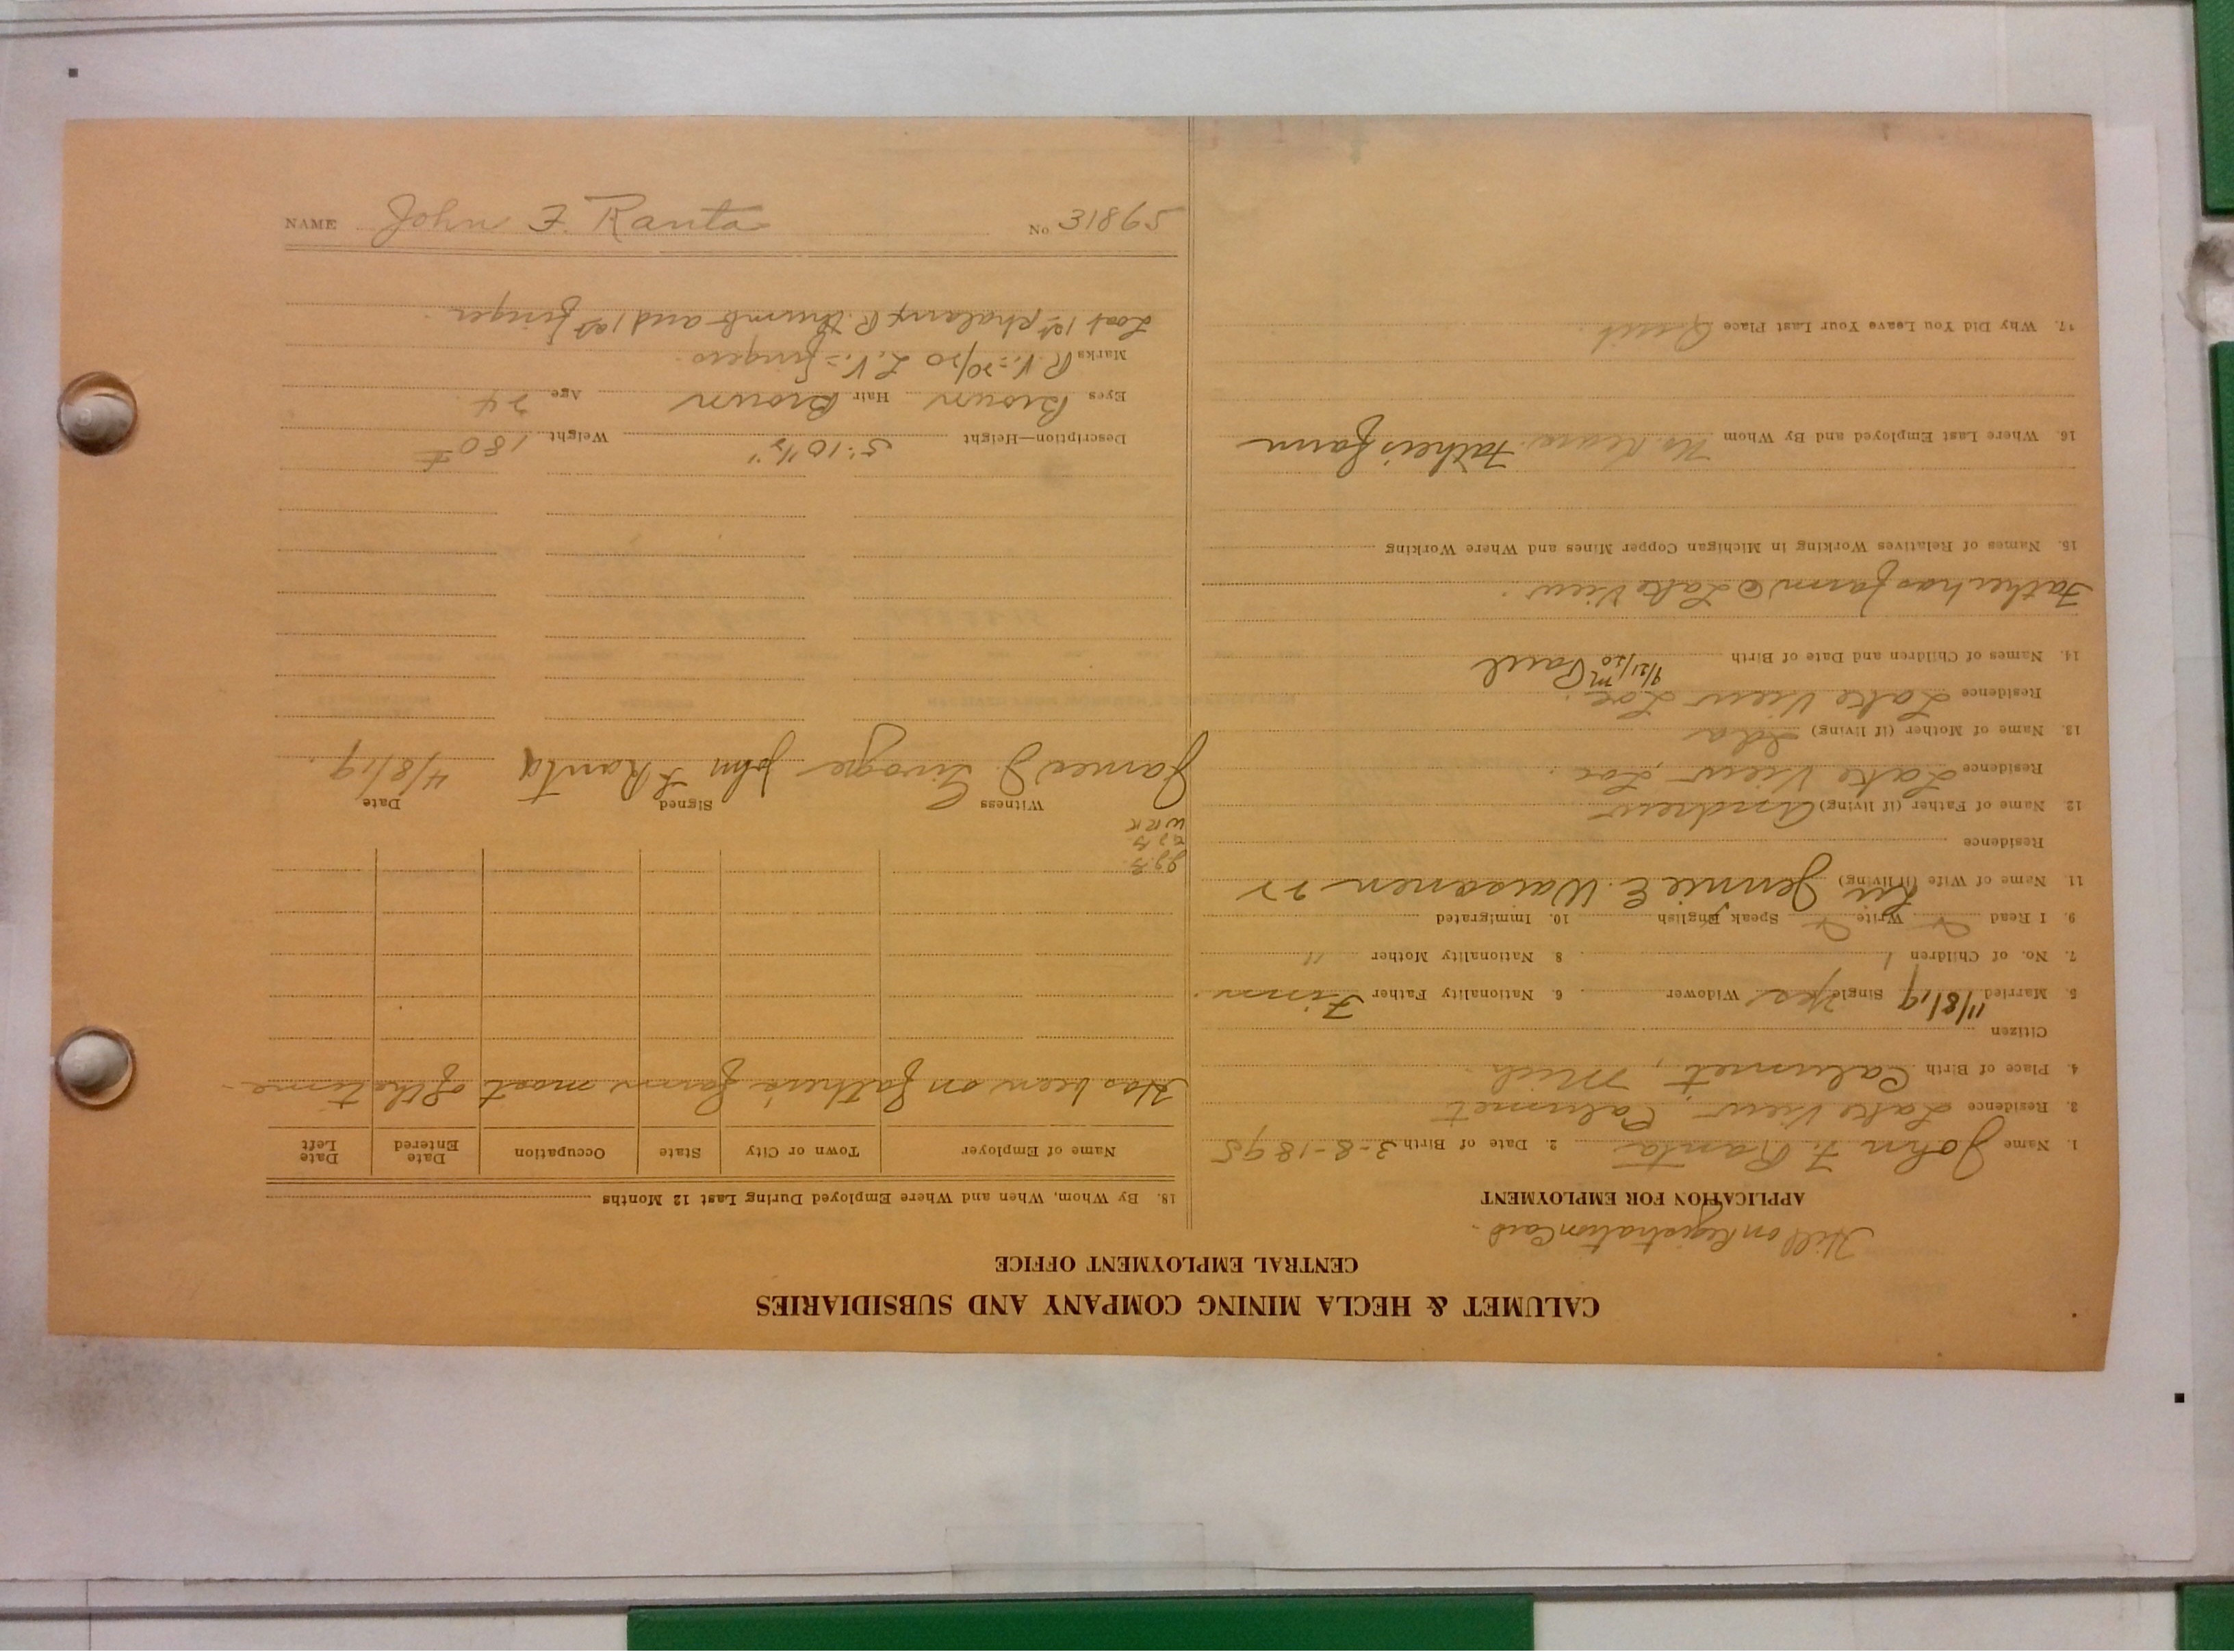 CALUMET & HECLA MINING COMPANY AND SUBSIDIARIES
CENTRAL EMPLOYMENT OFFICE
Hill on Registration Card.
APPLICATION FOR EMPLOYMENT
1. Name John F. Ranta 2. Date of Birth 3-8-1895
3. Residence Lake View, Calumet
4. Place of Birth Calumet, Mich.
Citizen
5. Married 11/8/19 Single yes Widower 6. Nationality Father Finn.
7. No. of Children 1 8 Nationality Mother "
9. I Read Write Speak English 10. Immigrated
11. Name of Wife (if living) Jennie E. Waisonen 22
Residence
12. Name of Father (if living) Andrew
Residence Lake View Loc.
13. Name of Mother (if living) Ida
Residence Lake View Loc.
14. Names of Children and Date of Birth 9/21/20 m Paul
Father has farm @ Lake View.
15. Names of Relatives Working in Michigan Copper Mines and Where Working
16. Where Last Employed and By Whom Father's farm
17. Why Did You Leave Your Last Place Quit.
18. By Whom, When and Where Employed During Last 12 Months
Name of Employer Town or City State Occupation Date Entered Date Left
Has been on father's farm most of the time.
W R K
Witness Signed Date
James J John F Ranta 4/8/19.
Description—Height 5'.10 1/2" Weight 180 ±
Eyes Brown Hair Brown Age 24
Marks R.V.=20/20 L.V.=fingers.
Lost 1st phalanx R. thumb and 1st finger.
NAME John F. Ranta No 31865